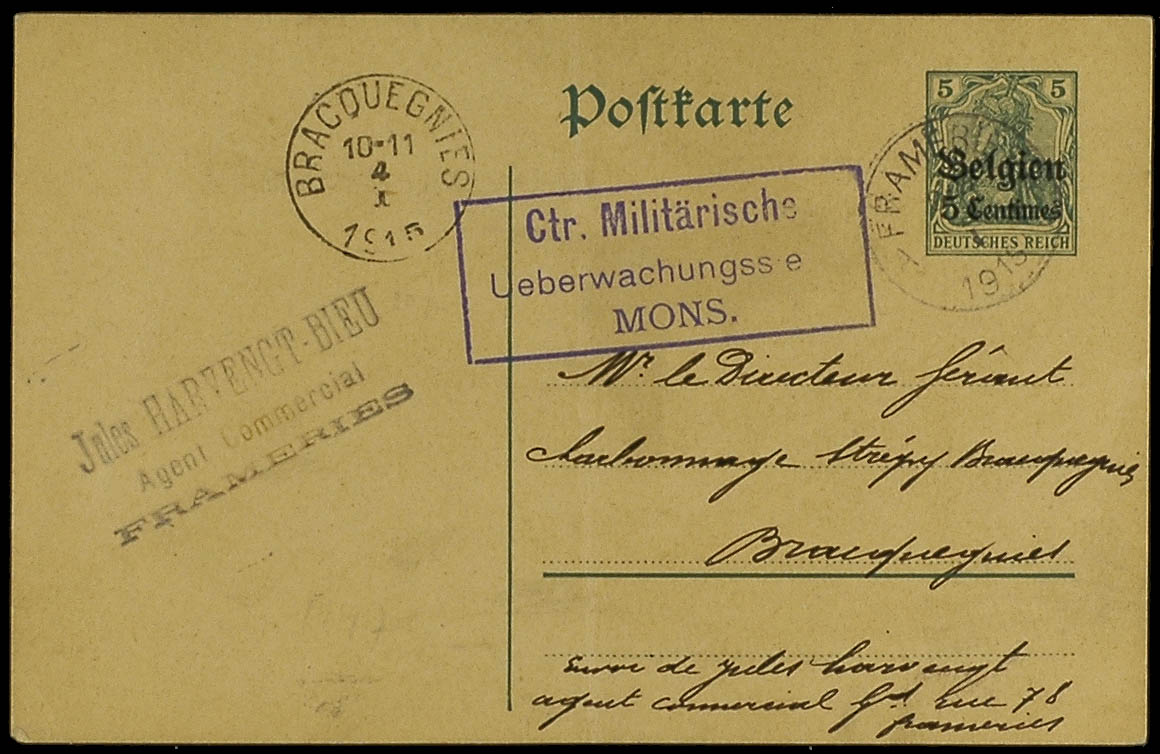 Postkarte
5 5
Belgien
5 Centimes
DEUTSCHES REICH
BRACQUEGNIES
10-11
4
X
1915
FRAMERIES
1915
Ctr. Militärische
Ueberwachungss e
MONS.
Jules HARVENGT-BIEU
Agent Commercial
FRAMERIES
Mr. le Directeur Gérant
Charbonnage Strépy Bracquegnies
Bracquegnies
Envoi de jules harvengt
agent commercial Gd rue 78
frameries